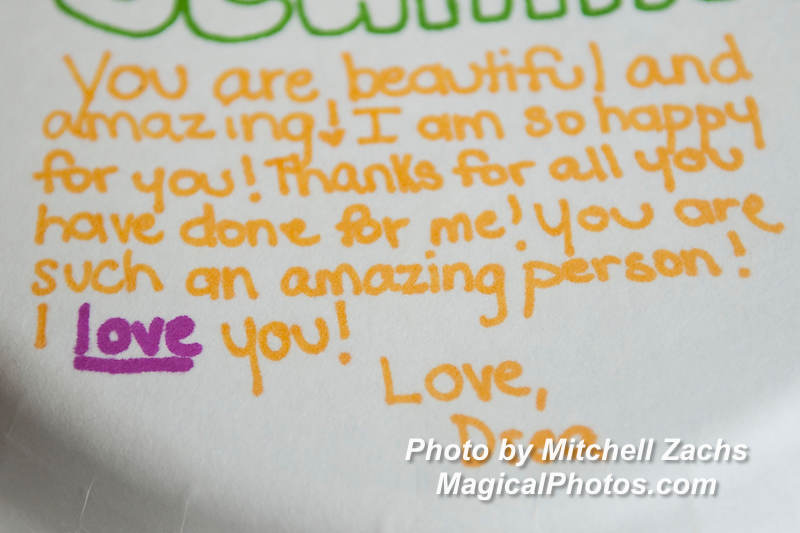 You are beautiful and
amazing! I am so happy
for you! Thanks for all you
have done for me! You are
such an amazing person!
I love you!
Love,
Photo by Mitchell Zachs
MagicalPhotos.com